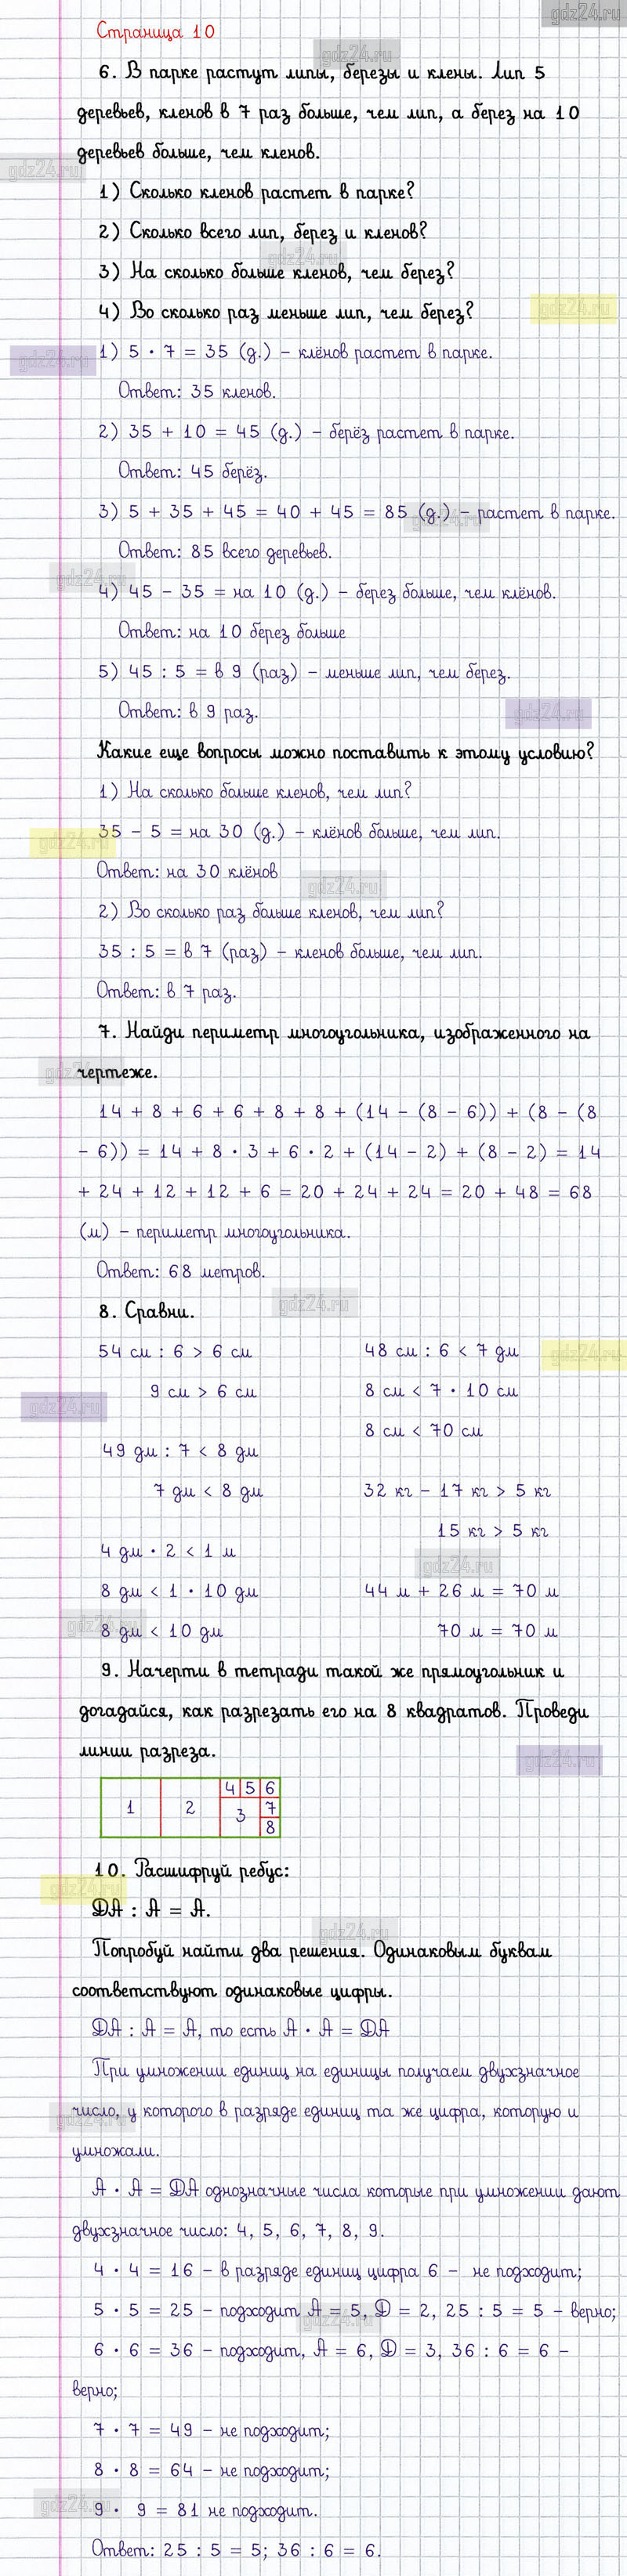 gdz24.ru
Страница 10
gdz24.ru
6. В парке растут липы, березы и клены. Лип 5
деревьев, кленов в 7 раз больше, чем лип, а берез на 10
деревьев больше, чем кленов.
gdz24.ru
1) Сколько кленов растет в парке?
2) Сколько всего лип, берез и кленов?
gdz24.ru
3) На сколько больше кленов, чем берез?
4) Во сколько раз меньше лип, чем берез?
gdz24.ru
1) 5 · 7 = 35 (д.) – клёнов растет в парке.
gdz24.ru
Ответ: 35 кленов.
2) 35 + 10 = 45 (д.) – берёз растет в парке.
Ответ: 45 берёз.
3) 5 + 35 + 45 = 40 + 45 = 85 (д.) – растет в парке.
gdz24.ru
Ответ: 85 всего деревьев.
gdz24.ru
4) 45 – 35 = на 10 (д.) – берез больше, чем клёнов.
Ответ: на 10 берез больше
5) 45 : 5 = в 9 (раз) – меньше лип, чем берез.
Ответ: в 9 раз.
gdz24.ru
Какие еще вопросы можно поставить к этому условию?
1) На сколько больше кленов, чем лип?
35 – 5 = на 30 (д.) – клёнов больше, чем лип.
gdz24.ru
Ответ: на 30 клёнов
gdz24.ru
2) Во сколько раз больше кленов, чем лип?
35 : 5 = в 7 (раз) – кленов больше, чем лип.
Ответ: в 7 раз.
7. Найди периметр многоугольника, изображенного на
чертеже.
gdz24.ru
14 + 8 + 6 + 6 + 8 + 8 + (14 – (8 – 6)) + (8 – (8
– 6)) = 14 + 8 · 3 + 6 · 2 + (14 – 2) + (8 – 2) = 14
+ 24 + 12 + 12 + 6 = 20 + 24 + 24 = 20 + 48 = 68
(м) – периметр многоугольника.
Ответ: 68 метров.
gdz24.ru
8. Сравни.
54 см : 6 > 6 см
9 см > 6 см
48 см : 6 < 7 дм
gdz24.ru
8 см < 7 · 10 см
8 см < 70 см
gdz24.ru
49 дм : 7 < 8 дм
7 дм < 8 дм
32 кг – 17 кг > 5 кг
15 кг > 5 кг
4 дм · 2 < 1 м
8 дм < 1 · 10 дм
8 дм < 10 дм
gdz24.ru
44 м + 26 м = 70 м
70 м = 70 м
gdz24.ru
9. Начерти в тетради такой же прямоугольник и
догадайся, как разрезать его на 8 квадратов. Проведи
линии разреза.
gdz24.ru
4 5 6
1 2 3 7
8
10. Расшифруй ребус:
gdz24.ru
ДА : А = А.
gdz24.ru
Попробуй найти два решения. Одинаковым буквам
соответствуют одинаковые цифры.
ДА : А = А, то есть А · А = ДА
При умножении единиц на единицы получаем двухзначное
число, у которого в разряде единиц та же цифра, которую и
gdz24.ru
умножали.
А · А = ДА однозначные числа которые при умножении дают
двухзначное число: 4, 5, 6, 7, 8, 9.
4 · 4 = 16 – в разряде единиц цифра 6 – не подходит;
5 · 5 = 25 – подходит А = 5, Д = 2, 25 : 5 = 5 – верно;
gdz24.ru
6 · 6 = 36 – подходит, А = 6, Д = 3, 36 : 6 = 6 –
верно;
7 · 7 = 49 – не подходит;
8 · 8 = 64 – не подходит;
gdz24.ru
9 · 9 = 81 не подходит.
Ответ: 25 : 5 = 5; 36 : 6 = 6.